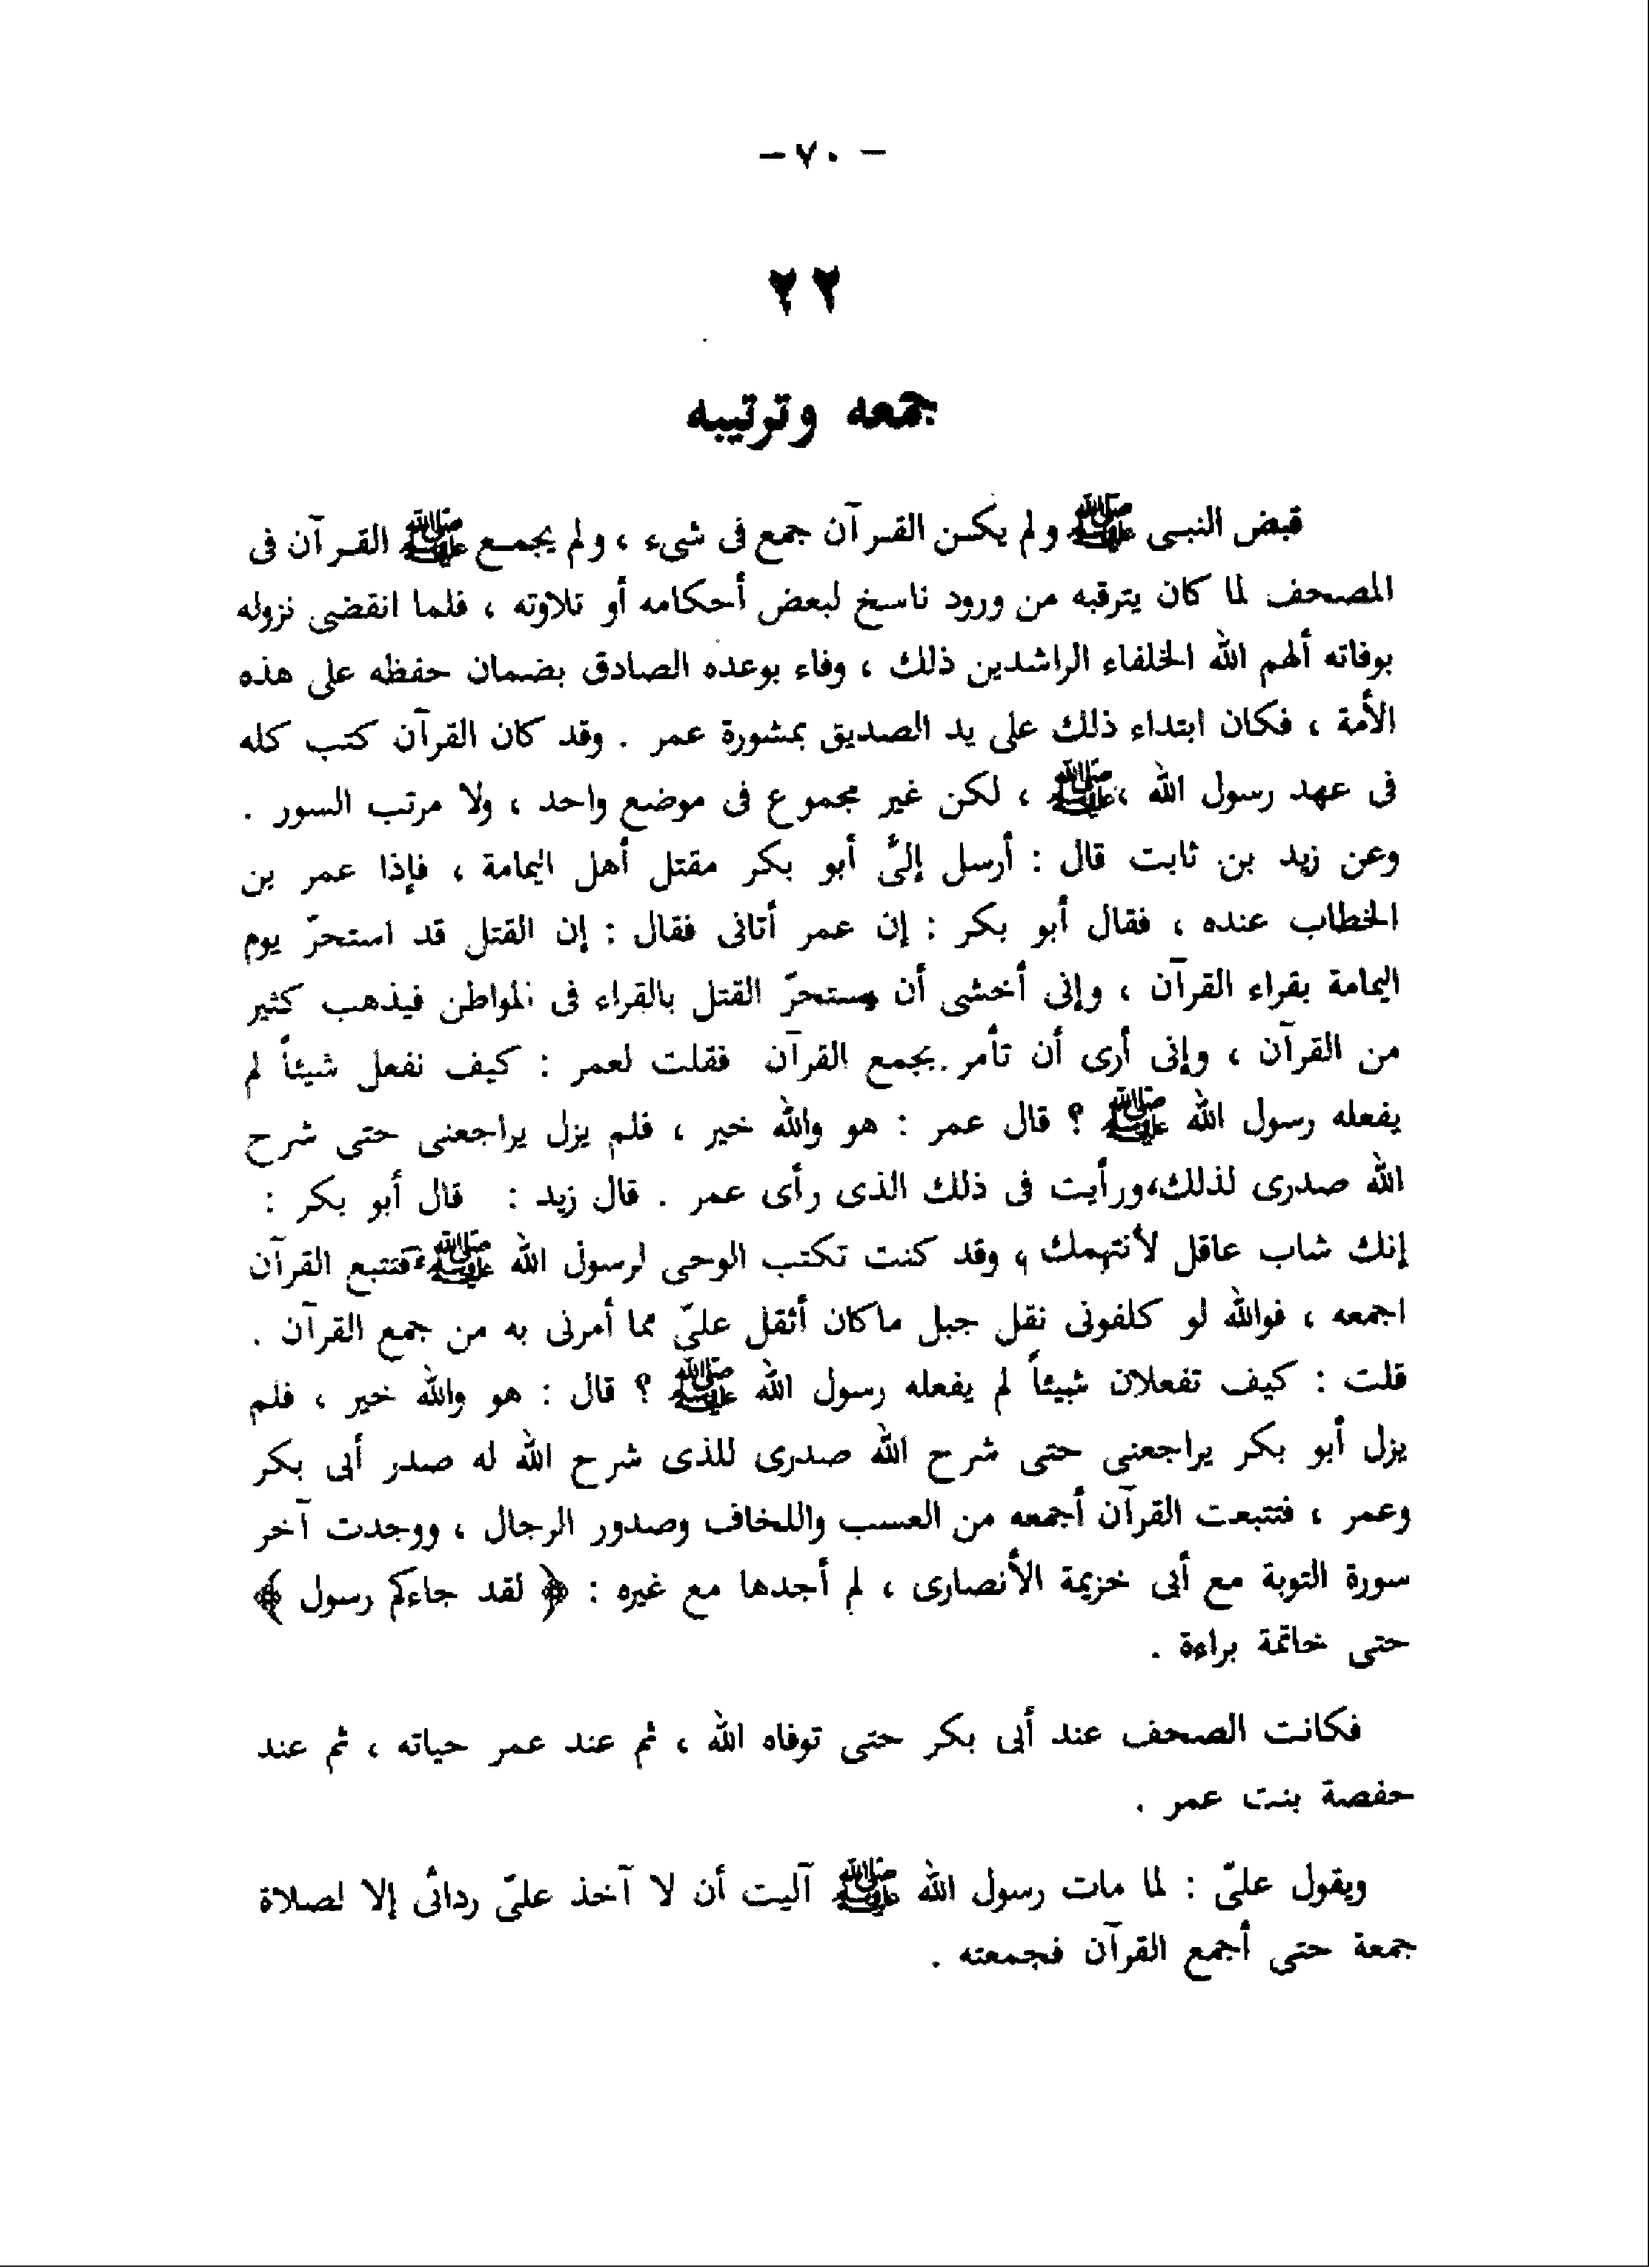 – ٧٠ –
٢٢
جمعه وترتيبه
قبض النبى ﷺ ولم يكن القرآن جمع فى شىء ، ولم يجمع ﷺ القرآن فى
المصحف لما كان يترقبه من ورود ناسخ لبعض أحكامه أو تلاوته ، فلما انقضى نزوله
بوفاته ألهم الله الخلفاء الراشدين ذلك ، وفاء بوعده الصادق بضمان حفظه على هذه
الأمة ، فكان ابتداء ذلك على يد الصديق بمشورة عمر . وقد كان القرآن كتب كله
فى عهد رسول الله ، ﷺ ، لكن غير مجموع فى موضع واحد ، ولا مرتب السور .
وعن زيد بن ثابت قال : أرسل إلىَّ أبو بكر مقتل أهل اليمامة ، فإذا عمر بن
الخطاب عنده ، فقال أبو بكر : إن عمر أتانى فقال : إن القتل قد استحرّ يوم
اليمامة بقراء القرآن ، وإنى أخشى أن يستحرّ القتل بالقراء فى المواطن فيذهب كثير
من القرآن ، وإنى أرى أن تأمر بجمع القرآن فقلت لعمر : كيف نفعل شيئاً لم
يفعله رسول الله ﷺ ؟ قال عمر : هو والله خير ، فلم يزل يراجعنى حتى شرح
الله صدرى لذلك،ورأيت فى ذلك الذى رأى عمر . قال زيد : قال أبو بكر :
إنك شاب عاقل لأنتهمك ، وقد كنت تكتب الوحى لرسول الله ﷺ،فتتبع القرآن
اجمعه ، فوالله لو كلفونى نقل جبل ماكان أثقل علىّ مما أمرنى به من جمع القرآن .
قلت : كيف تفعلان شيئاً لم يفعله رسول الله ﷺ ؟ قال : هو والله خير ، فلم
يزل أبو بكر يراجعنى حتى شرح الله صدرى للذى شرح الله له صدر أبى بكر
وعمر ، فتتبعت القرآن أجمعه من العسب واللخاف وصدور الرجال ، ووجدت آخر
سورة التوبة مع أبى خزيمة الأنصارى ، لم أجدها مع غيره : ﴿ لقد جاءكم رسول ﴾
حتى خاتمة براءة .
فكانت الصحف عند أبى بكر حتى توفاه الله ، ثم عند عمر حياته ، ثم عند
حفصة بنت عمر .
ويقول علىّ : لما مات رسول الله ﷺ آليت أن لا آخذ علىّ ردائى إلا لصلاة
جمعة حتى أجمع القرآن فجمعته .